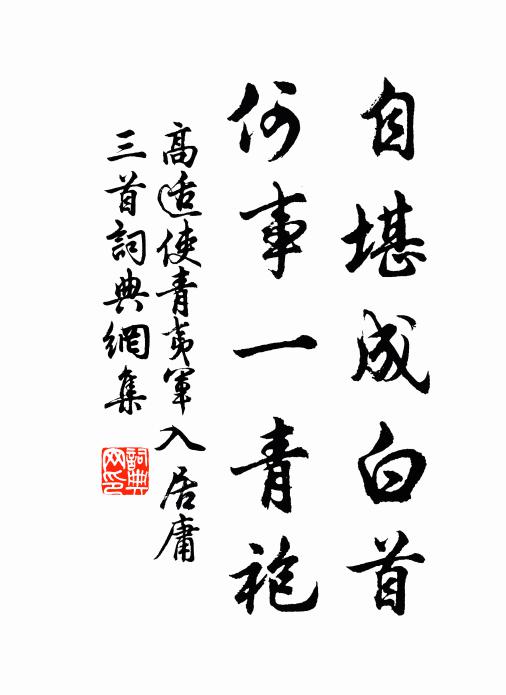 自堪成白首
何事一青袍
高适使青夷軍入居庸
三首詞典網集
詞典网印